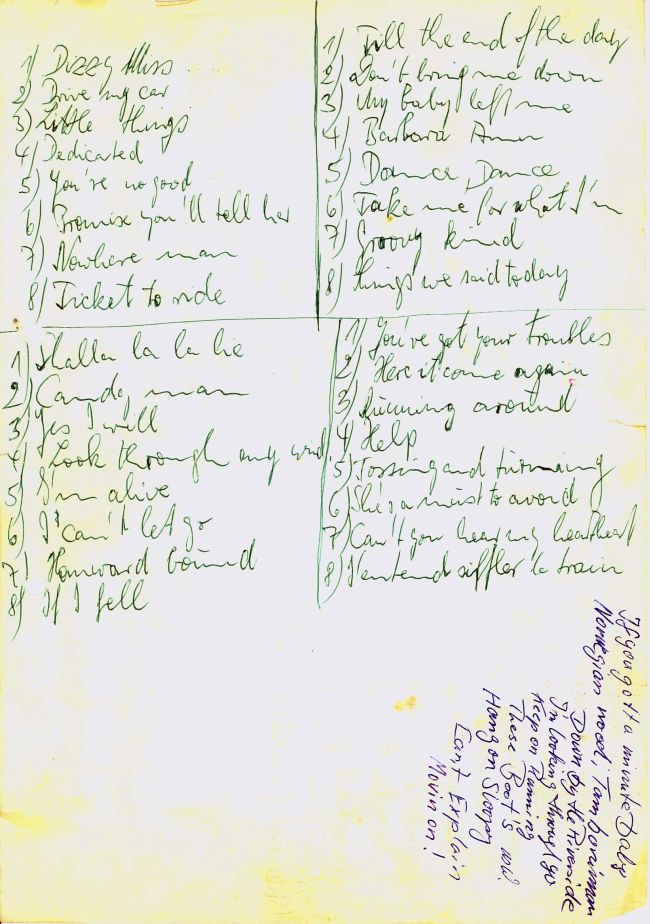 1) Dizzy Miss
2) Drive my car
3) Little things
4) Dedicated
5) You're no good
6) Promise you'll tell her
7) Nowhere man
8) Ticket to ride
1) Till the end of the day
2) Don't bring me down
3) My baby left me
4) Barbara Ann
5) Dance, Dance
6) Take me for what I'm
7) Groovy kind
8) things we said today
1) Shalla la la lie
2) Candy man
3) Yes I will
4) Look through my wind
5) I'm alive
6) I can't let go
7) Homeward bound
8) If I fell
1) You've got your troubles
2) Here it come again
3) Running around
4) Help
5) Tossing and turning
6) She's a must to avoid
7) Can't you hear my heartbeat
8) J'entend siffler le train
If you gott a minute Baby
Norwegian wood, Tambouriman
Down by the Riverside
I'm looking through
Keep on Running
These Boot's
Hang on Sloopy
Can't Explain
Movin on!